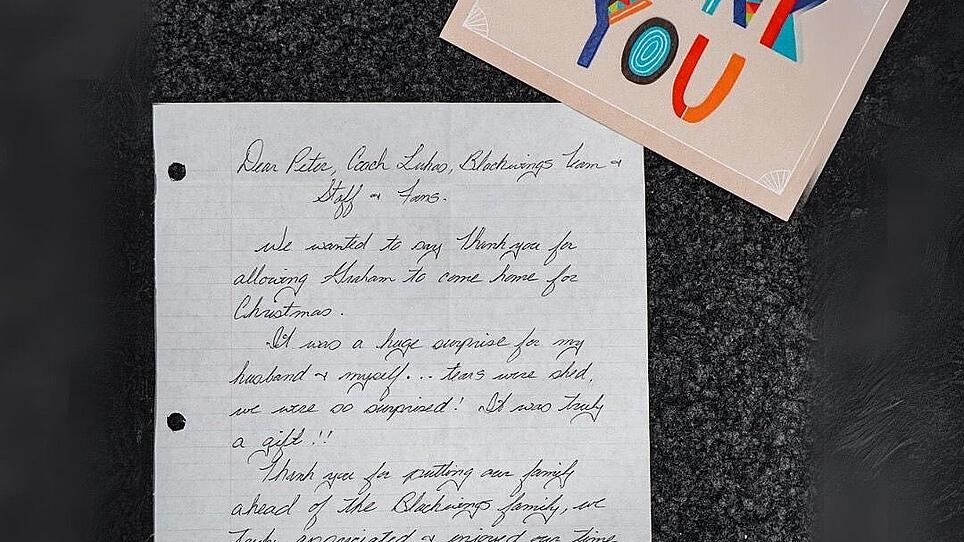 YOU
Dear Peter, Coach Lukas, Blackwings Team &
Staff & Fans.
We wanted to say Thank you for
allowing Graham to come home for
Christmas.
It was a huge surprise for my
husband & myself... tears were shed,
we were so surprised! It was truly
a gift!!
Thank you for putting our family
ahead of the Blackwings family, we
truly appreciated & enjoyed our time